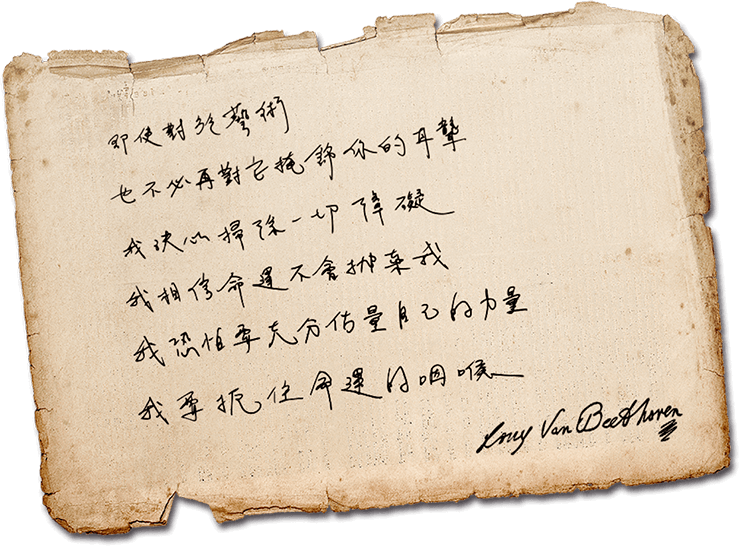 即使對於藝術
也不必再對它掩飾你的耳聾
我決心掃除一切障礙
我相信命運不會拋棄我
我恐怕要充分估量自己的力量
我要扼住命運的咽喉
Van Beethoven